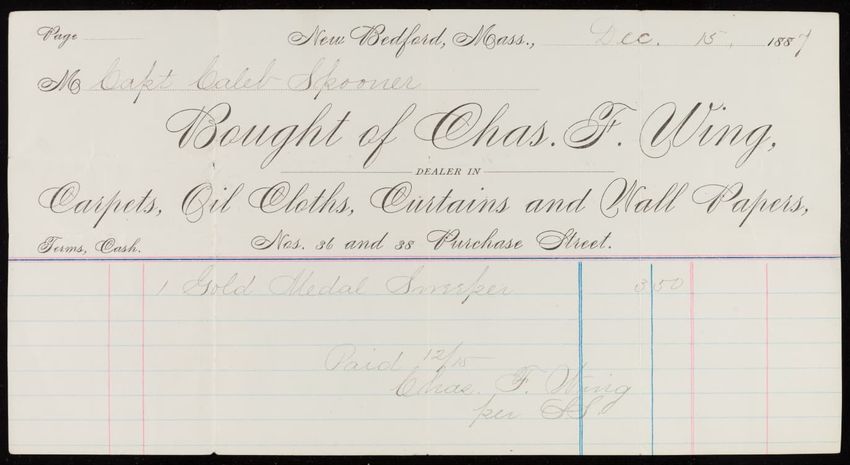 Page
New Bedford, Mass., Dec. 15, 1887
M Capt Caleb Spooner
Bought of Chas. F. Wing,
DEALER IN
Carpets, Oil Cloths, Curtains and Wall Papers,
Terms, Cash. Nos. 36 and 38 Purchase Street.
1 Gold Medal Sweeper 3.50
Paid 12/15
Chas. F. Wing
per